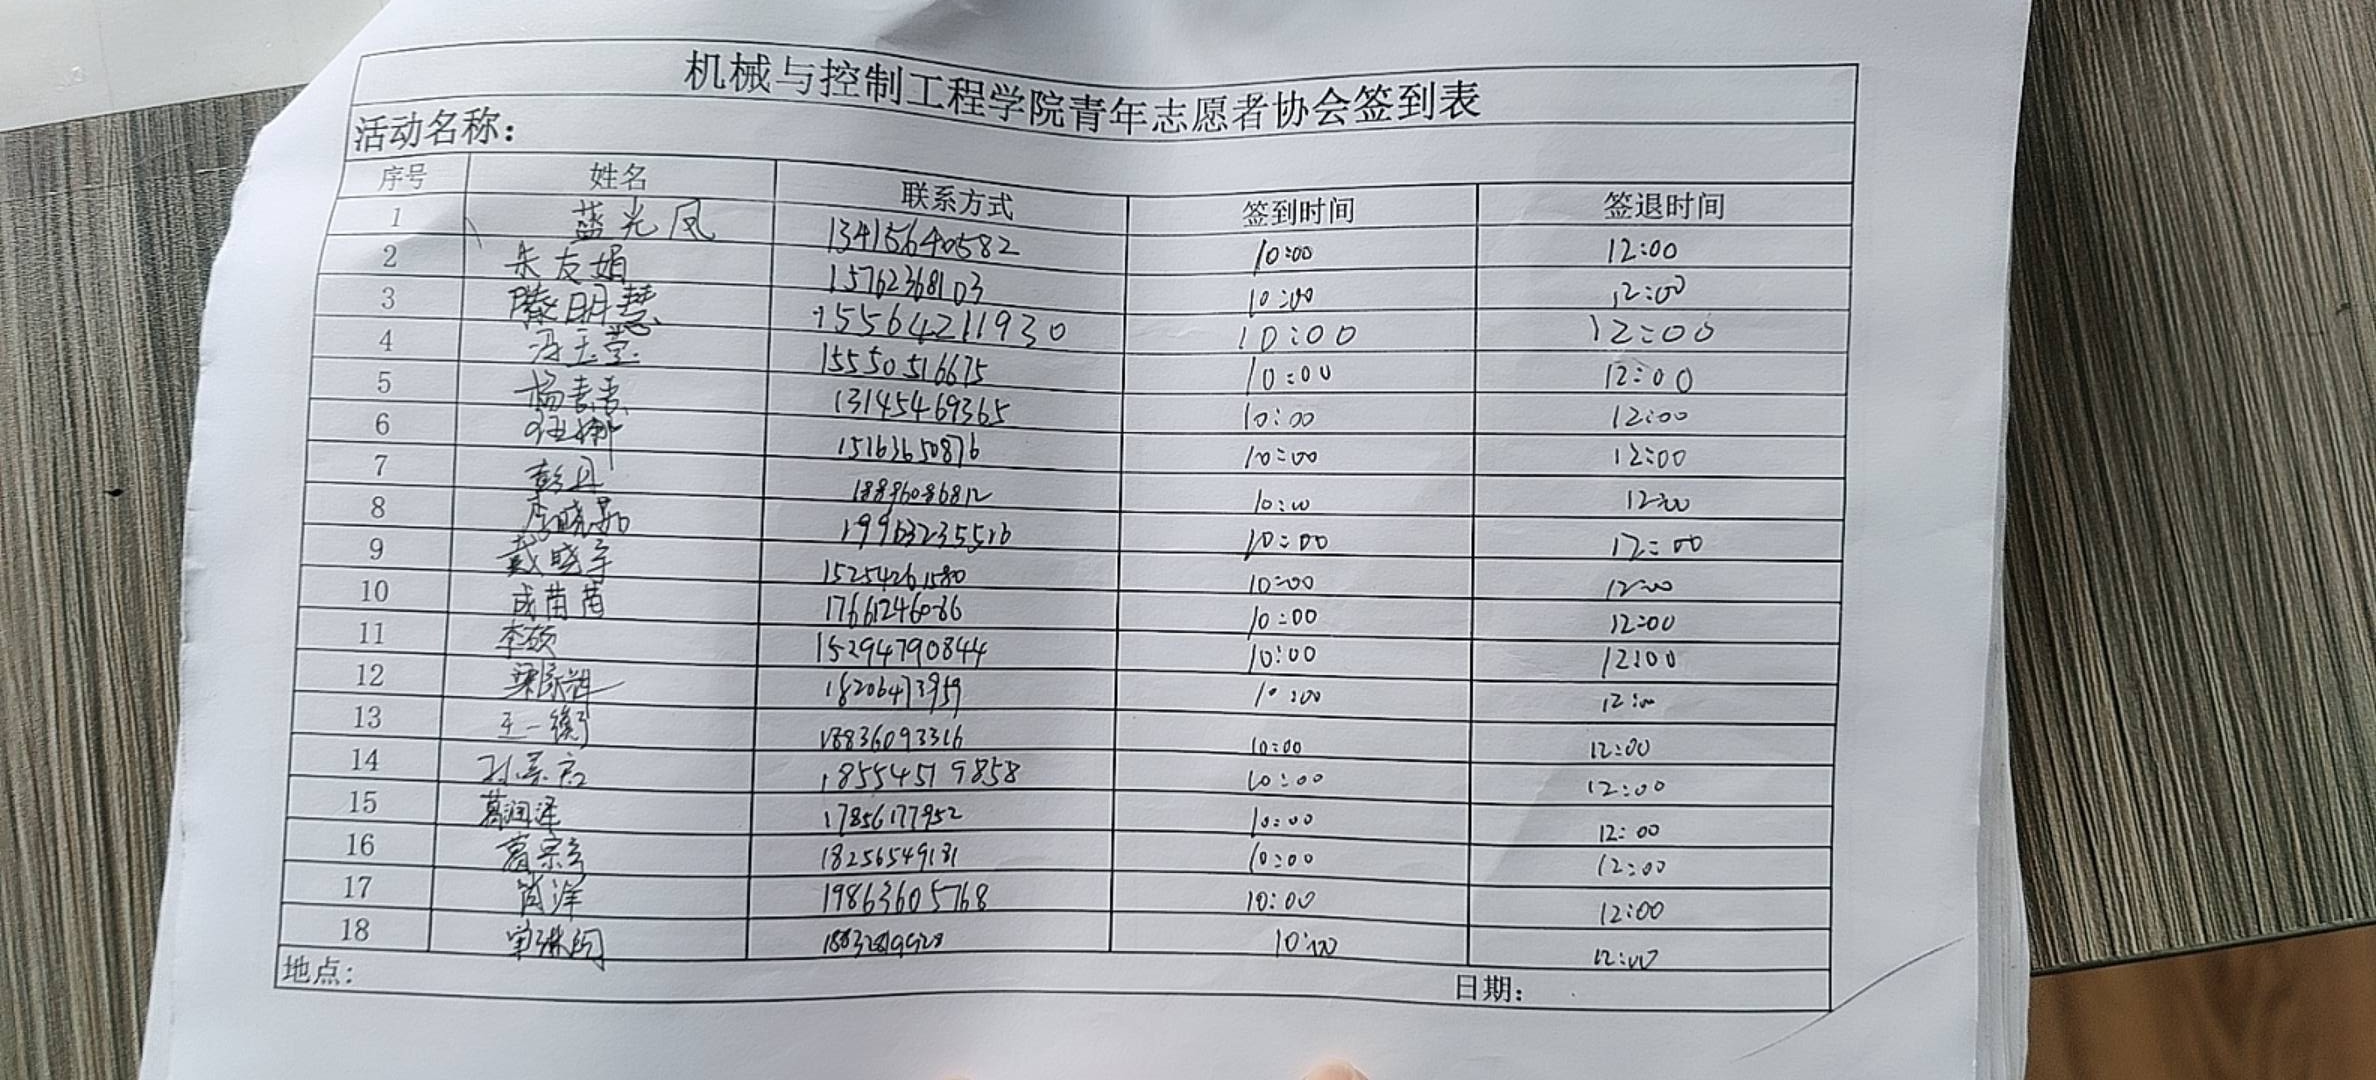 机械与控制工程学院青年志愿者协会签到表
活动名称：
序号 姓名 联系方式 签到时间 签退时间
1 蓝光凤 13415640582 10:00 12:00
2 朱友娟 15762368103 10:00 12:00
3 滕明慧 15564211930 10:00 12:00
4 冯玉莹 15550516675 10:00 12:00
5 杨青青 13145469365 10:00 12:00
6 15163650876 10:00 12:00
7 彭丹 10:00 12:00
8 19963235516 10:00 12:00
9 戴晓宇 15254261580 10:00 12:00
10 成苗苗 17661246086 10:00 12:00
11 李硕 15294790844 10:00 12:00
12 18206473959 10:00 12:00
13 王一衡 18836093316 10:00 12:00
14 18554519858 10:00 12:00
15 葛润泽 17856177952 10:00 12:00
16 18256549181 10:00 12:00
17 肖洋 19863605768 10:00 12:00
18 10:00 12:00
地点： 日期：